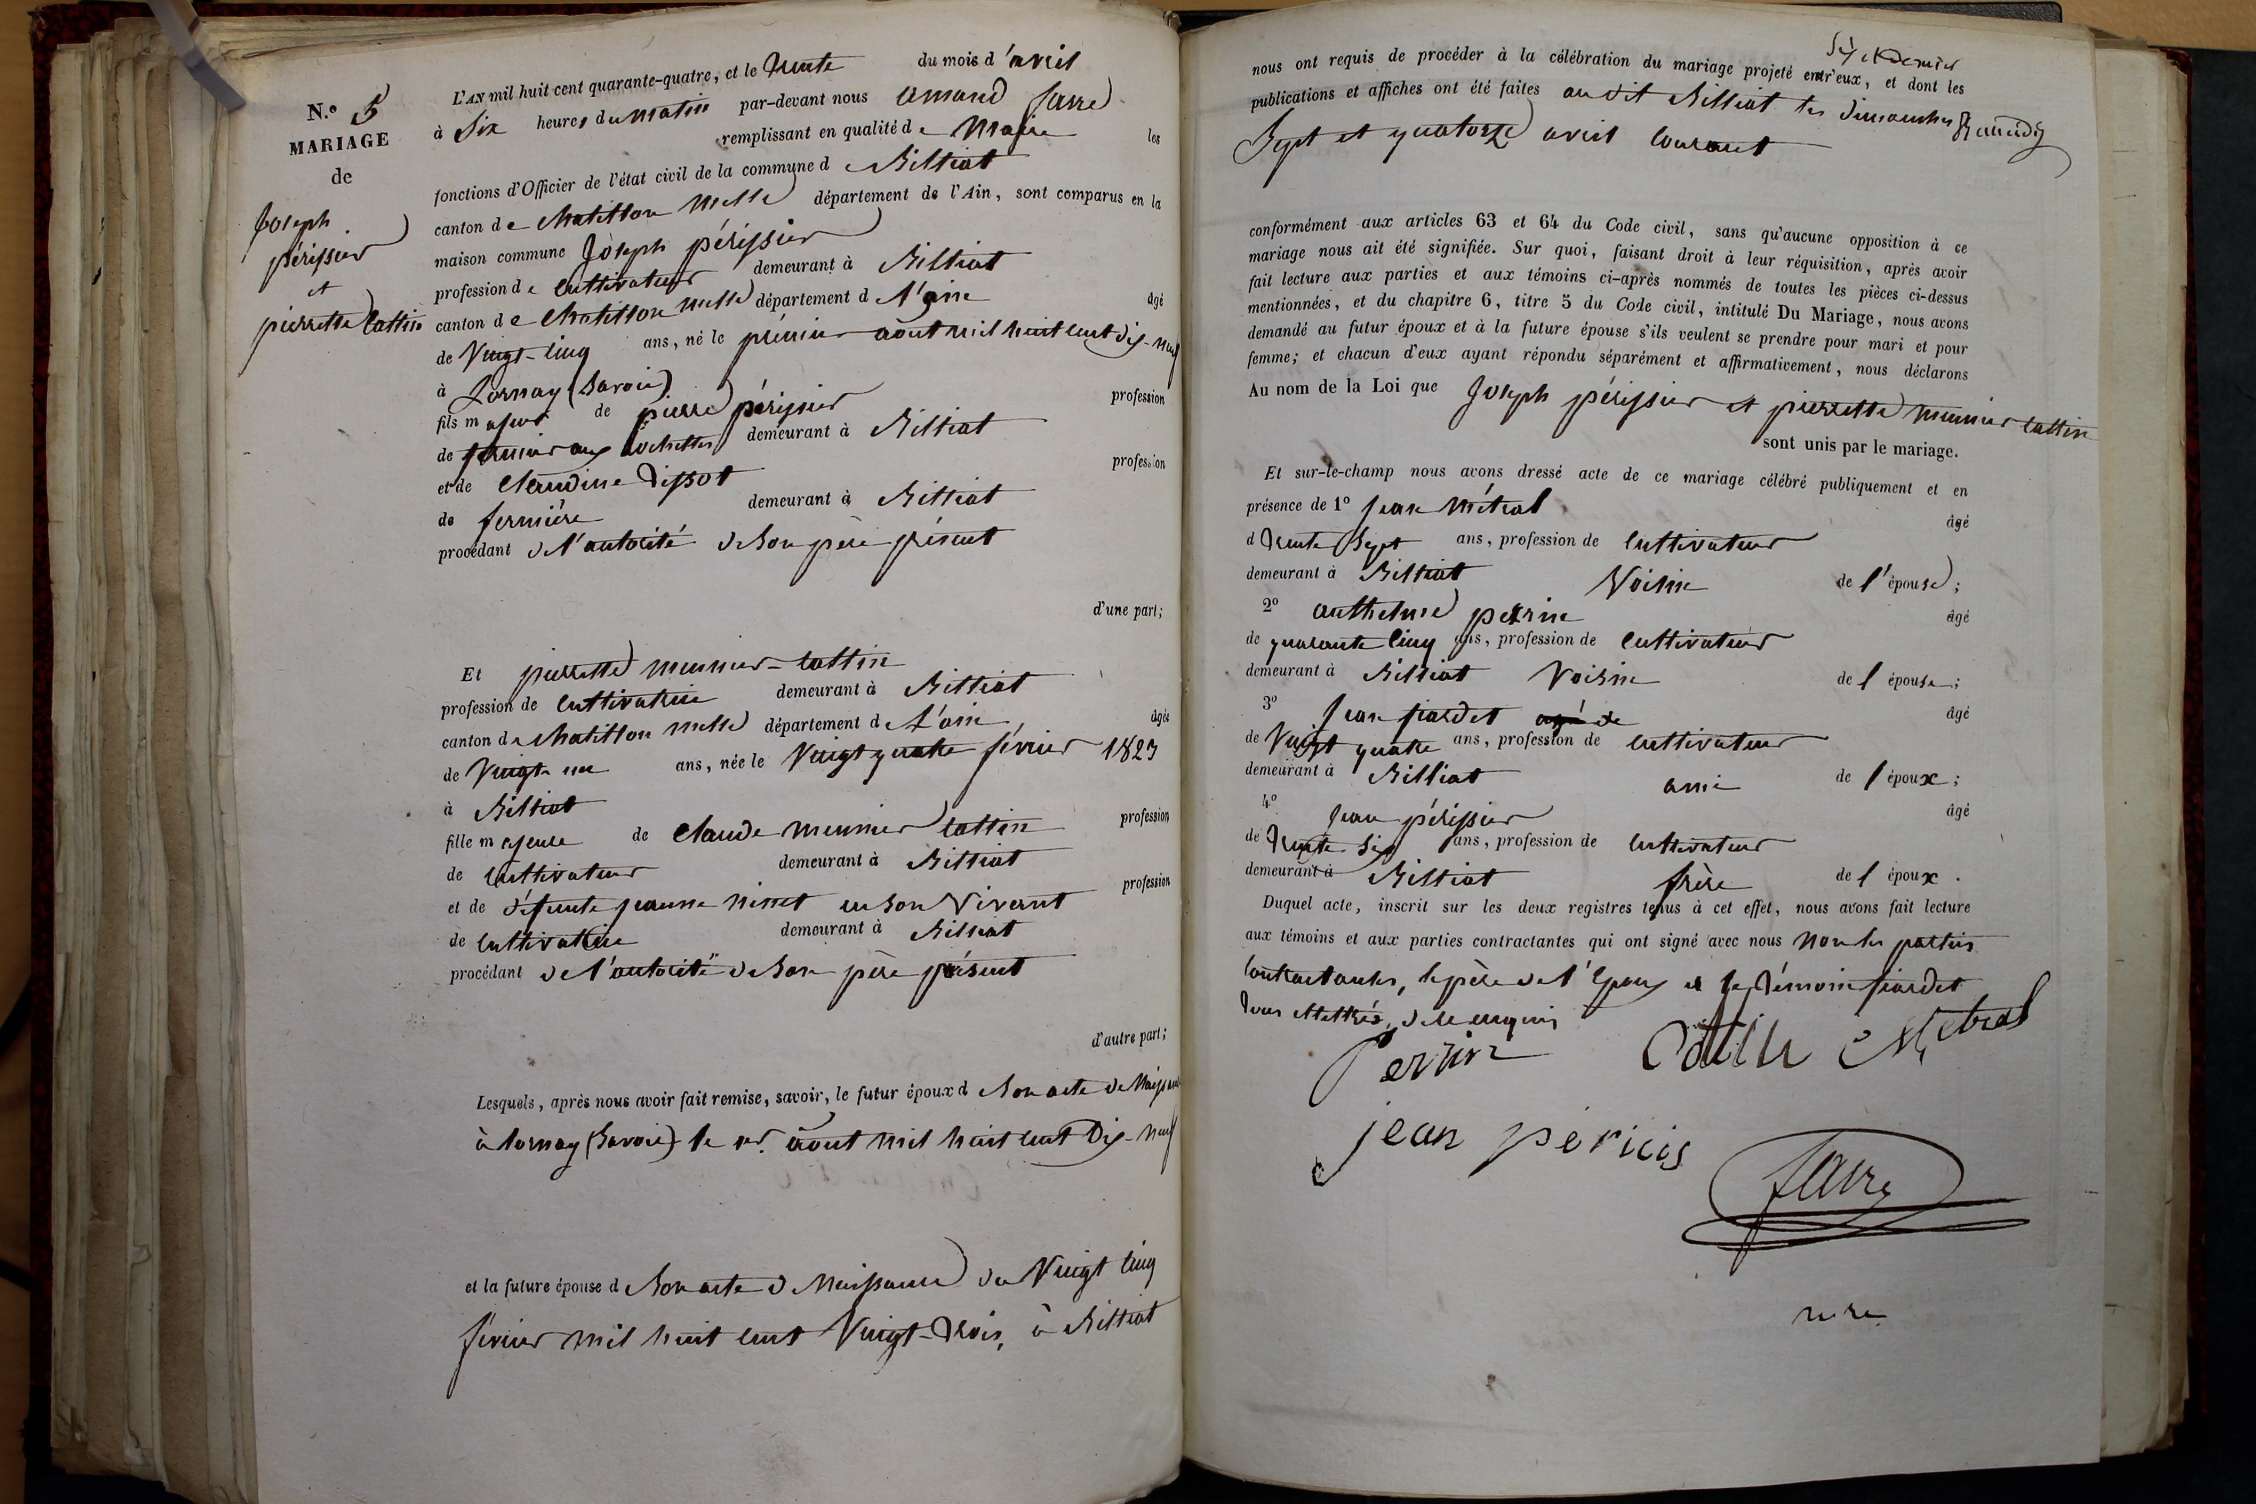 N.º 5
MARIAGE
de
Joseph
périssier
et
pierrette Cattin
L'AN mil huit cent quarante-quatre, et le trente du mois d'avril
à Six heures du matin par-devant nous amand favre
remplissant en qualité de Maire les
fonctions d'Officier de l'état civil de la commune de Billiat
canton de chatillon Mlle département de l'Ain, sont comparus en la
maison commune Joseph périssier
profession de Cultivateur demeurant à Billiat
canton de Chatillon Mlle département de l'ain âgé
de Vingt-cinq ans, né le premier aout mil huit cent dix-neuf
à Lornay (Savoie)
fils majeur de pierre périssier profession
de fermier aux demeurant à Billiat
et de Claudine Dissot profession
de fermière demeurant à Billiat
procédant de l'autorité de son père présent
d'une part;
Et pierrette meunier-Cattin
profession de Cultivatrice demeurant à Billiat
canton de chatillon Mlle département de l'ain, âgée
de Vingt-un ans, née le Vingt quatre février 1823
à Billiat
fille majeure de Claude meunier Cattin profession
de Cultivateur demeurant à Billiat
et de défunte jeanne ninet en son Vivant profession
de Cultivatrice demeurant à Billiat
procédant de l'autorité de son père présent
d'autre part;
Lesquels, après nous avoir fait remise, savoir, le futur époux d son acte de Naissance
à Lornay (Savoie) le 1er. aout mil huit cent Dix-neuf
et la future épouse d son acte de Naissance du Vingt cinq
février mil huit cent Vingt-trois, à Billiat
nous ont requis de procéder à la célébration du mariage projeté entr'eux, et dont les
publications et affiches ont été faites au dit Billiat les dimanches
Sept et quatorze avril courant
conformément aux articles 63 et 64 du Code civil, sans qu'aucune opposition à ce
mariage nous ait été signifiée. Sur quoi, faisant droit à leur réquisition, après avoir
fait lecture aux parties et aux témoins ci-après nommés de toutes les pièces ci-dessus
mentionnées, et du chapitre 6, titre 5 du Code civil, intitulé Du Mariage, nous avons
demandé au futur époux et à la future épouse s'ils veulent se prendre pour mari et pour
femme; et chacun d'eux ayant répondu séparément et affirmativement, nous déclarons
Au nom de la Loi que Joseph périssier et pierrette meunier Cattin
sont unis par le mariage.
Et sur-le-champ nous avons dressé acte de ce mariage célébré publiquement et en
présence de 1º jean Métral âgé
d trente Sept ans, profession de Cultivateur
demeurant à Billiat Voisin de l'épouse;
2º anthelme perrin âgé
de quarante cinq ans, profession de Cultivateur
demeurant à Billiat Voisin de l épouse;
3º Jean fiardet agé de âgé
de Vingt quatre ans, profession de Cultivateur
demeurant à Billiat ami de l époux;
4º Jean périssier âgé
de trente six ans, profession de Cultivateur
demeurant à Billiat frère de l époux.
Duquel acte, inscrit sur les deux registres tenus à cet effet, nous avons fait lecture
aux témoins et aux parties contractantes qui ont signé avec nous non les parties
contractantes, le père de l'époux et le témoin fiardet
tous illettrés, de ce enquis
Perrin Cattin Métral
jean péricis
favre